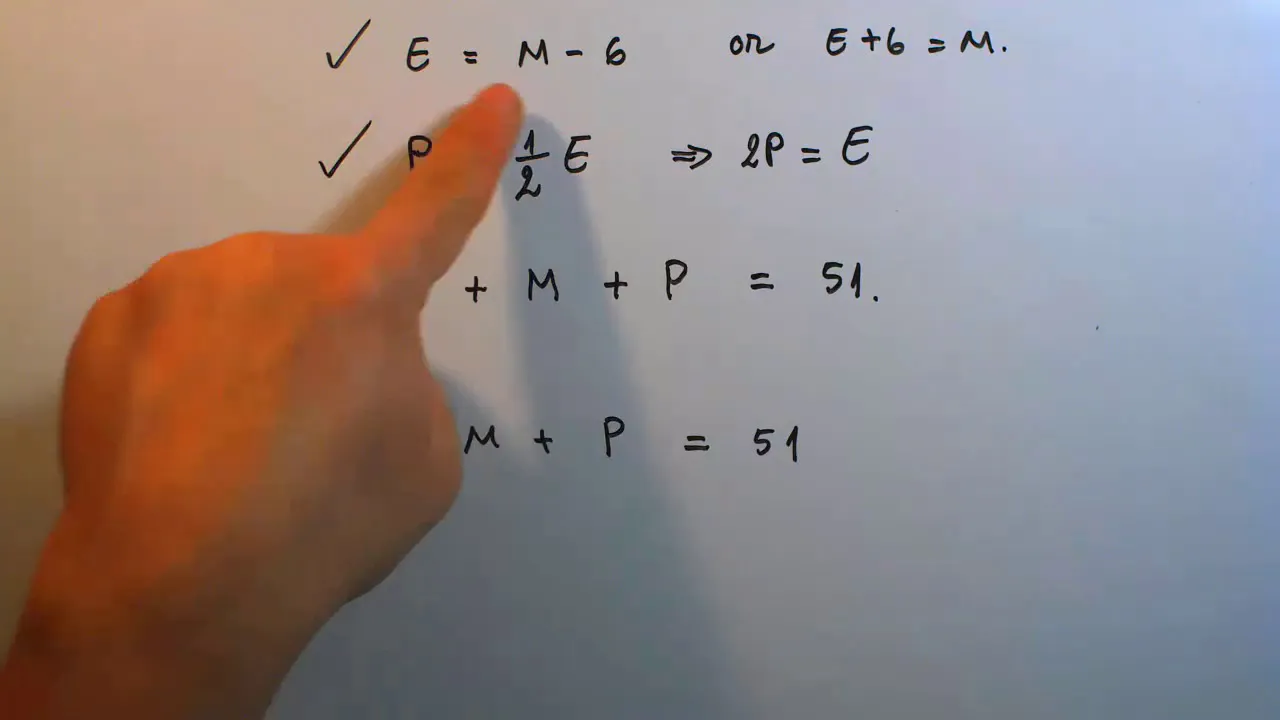 ✓ E = M - 6 or E + 6 = M.
✓ P 1/2 E ⇒ 2P = E
+ M + P = 51.
M + P = 51